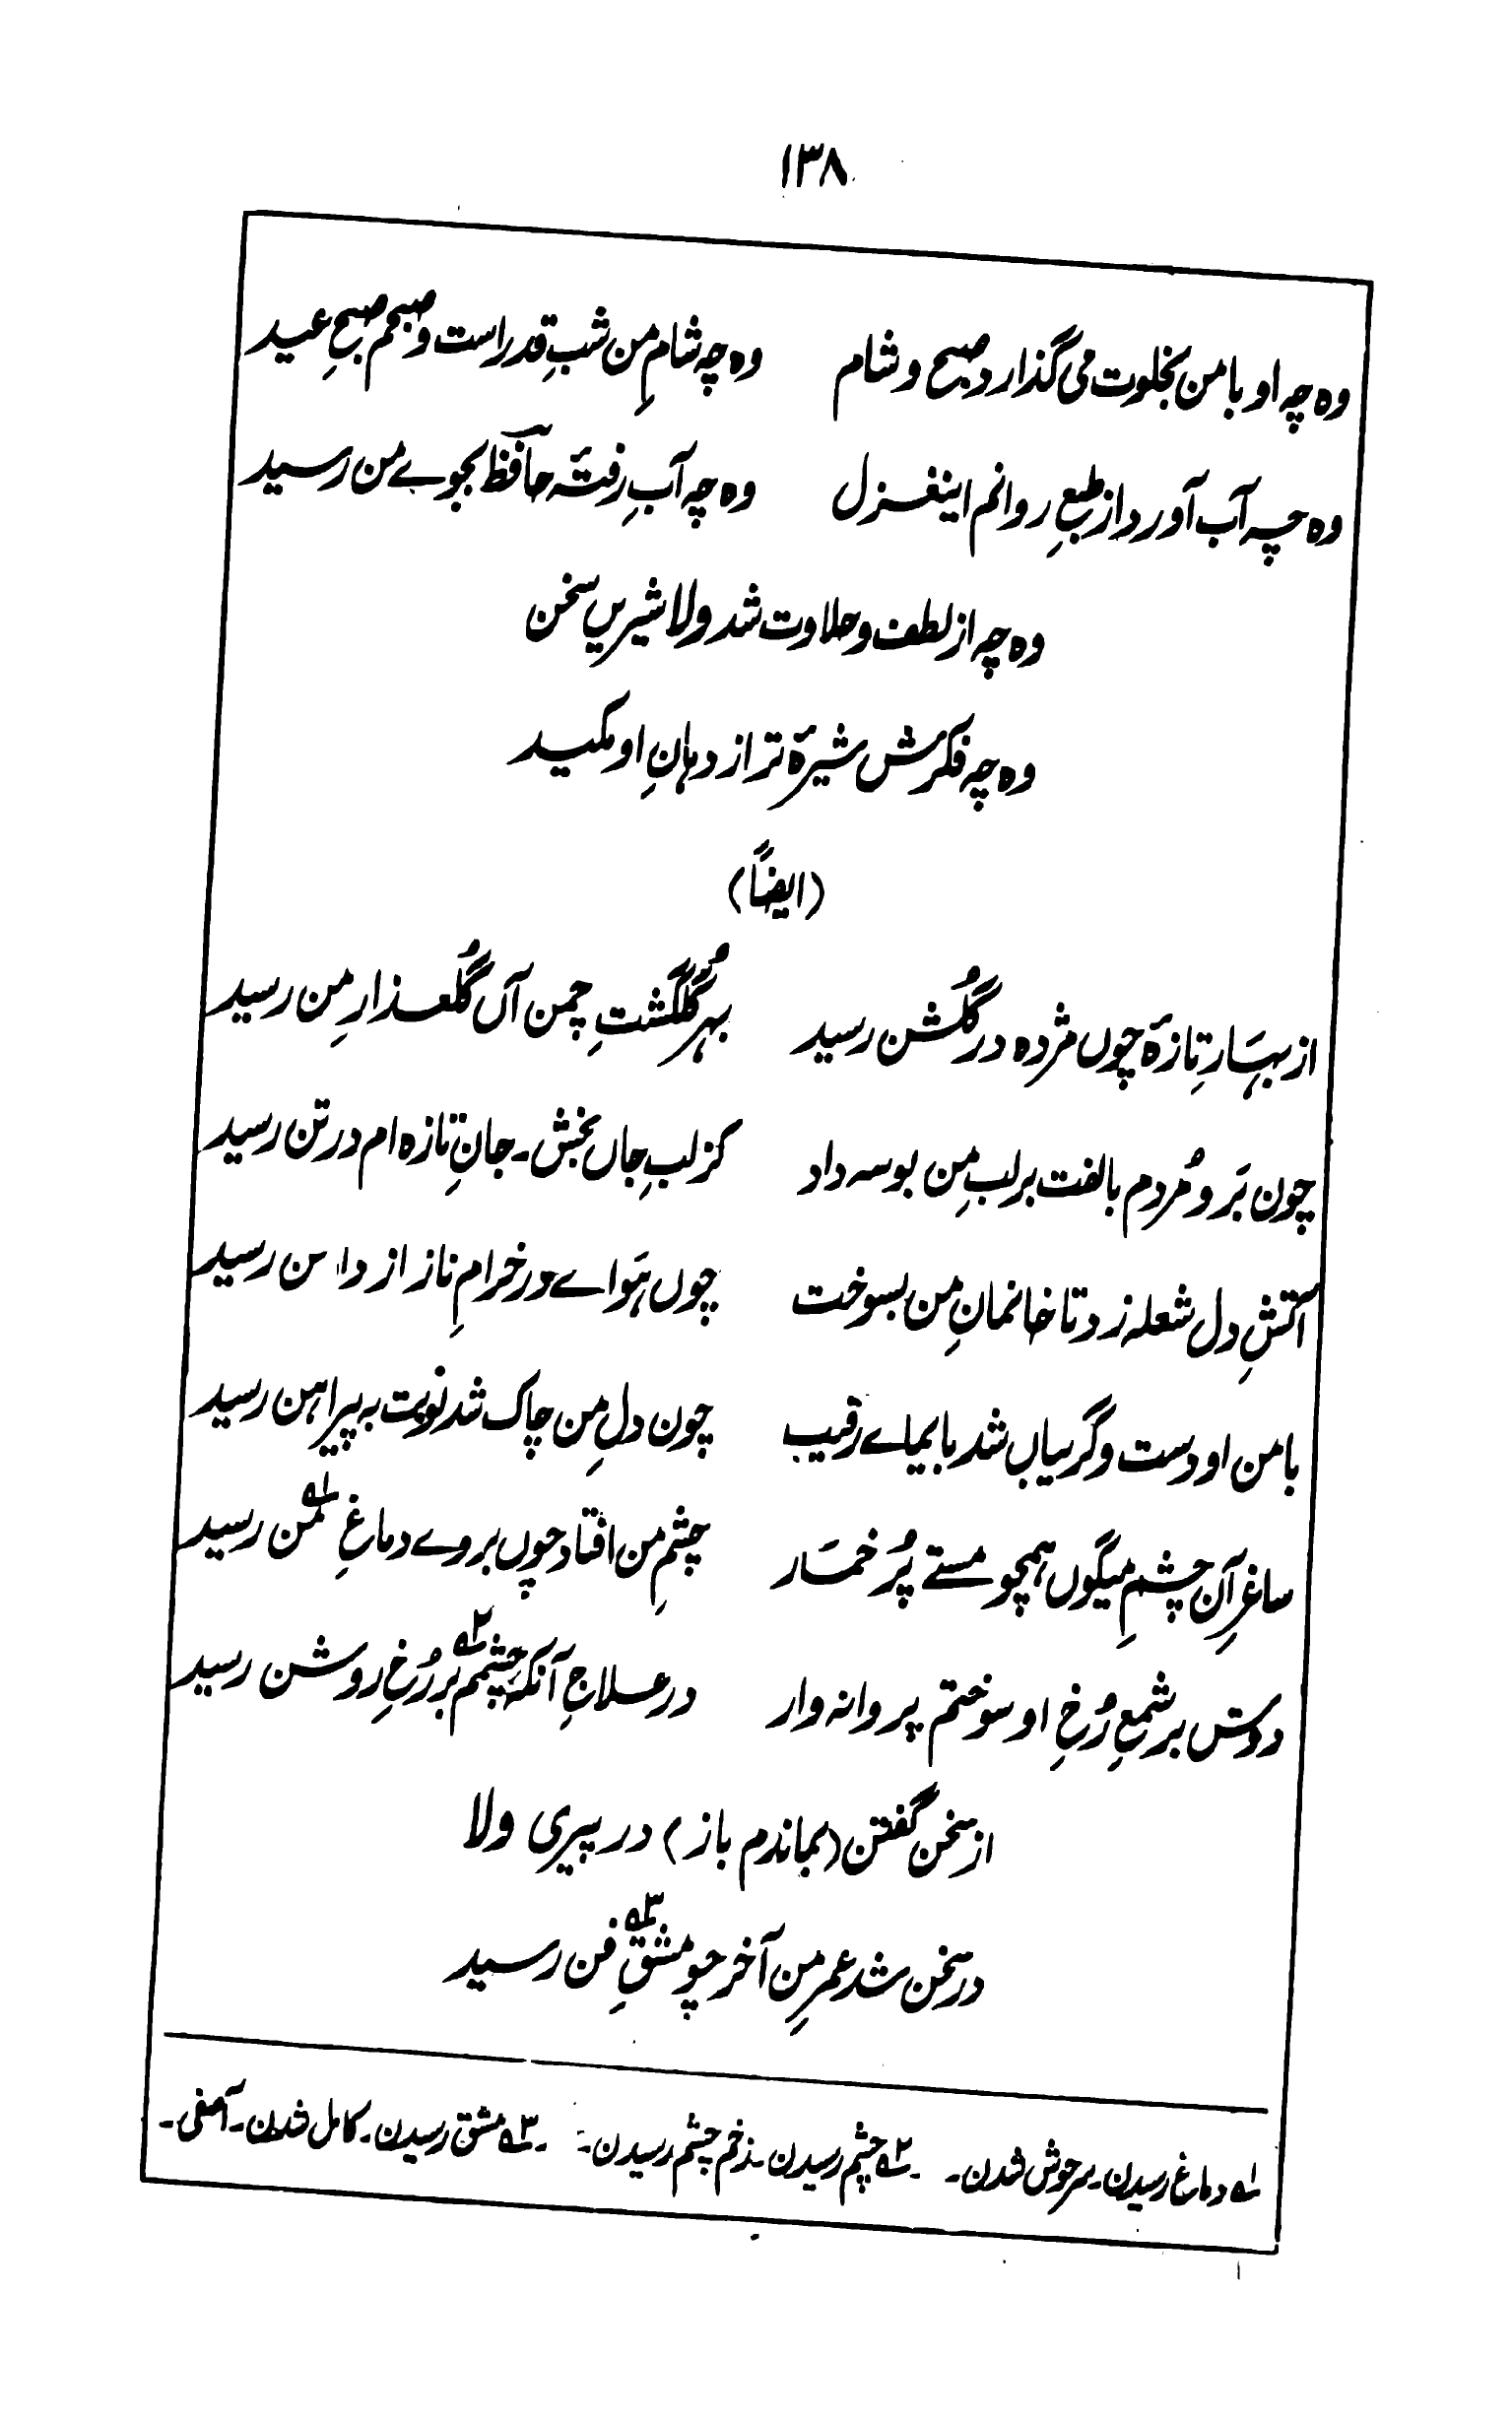 ۱۳۸
وہ چہ او با من بخلوت می گذارد صبح و شام وہ چہ شامِ من شبِ قدر است و صبحم صبحِ عید
وہ چہ آب آورد از طبعِ روانم اینغزل وہ چہ آبِ رفتۂ حافظ بجوے من رسید
وہ چہ از لطف و حلاوت شد ولا شیریں سخن
وہ چہ فکرش شیرۂ تر از دہانِ او مکید
(ایضاً)
از بہارِ تازۂ چوں مژدہ در گلشن رسید بہرِ گُلگشتِ چمن آں گُلعذارِ من رسید
چون بَر و مُردم بالفت بر لبِ من بوسہ داد کز لبِ جاں بخش۔ جانِ تازہ ام در تن رسید
آتشِ دل شعلہ زد تا خانمانِ من بسوخت چوں ہَواے در خرامِ ناز از دامن رسید
با من او دست و گریباں شد بایماے رقیب چون دلِ من چاک شد نوبت بہ پیراہن رسید
ساغرِ آن چشمِ میگوں ہمچو مستے پُر خمار چشمِ من افتاد چوں بروے دماغِ ؎۱ من رسید
دوش بر شمعِ رُخِ او سوختم پروانہ وار در علاجِ آنکہ چشمم ؎۲ بر رُخِ روشن رسید
از سخن گفتن (بماندم باز) در پیری ولا
در سخن شد عمرِ من آخر چو مشقِ ؎۳ فن رسید
؎۱ دماغ رسیدن۔ سرخوش شدن۔ ؎۲ چشم رسیدن۔ زخم چشم رسیدن۔ ؎۳ مشق رسیدن۔ کامل شدن۔ آصفی۔